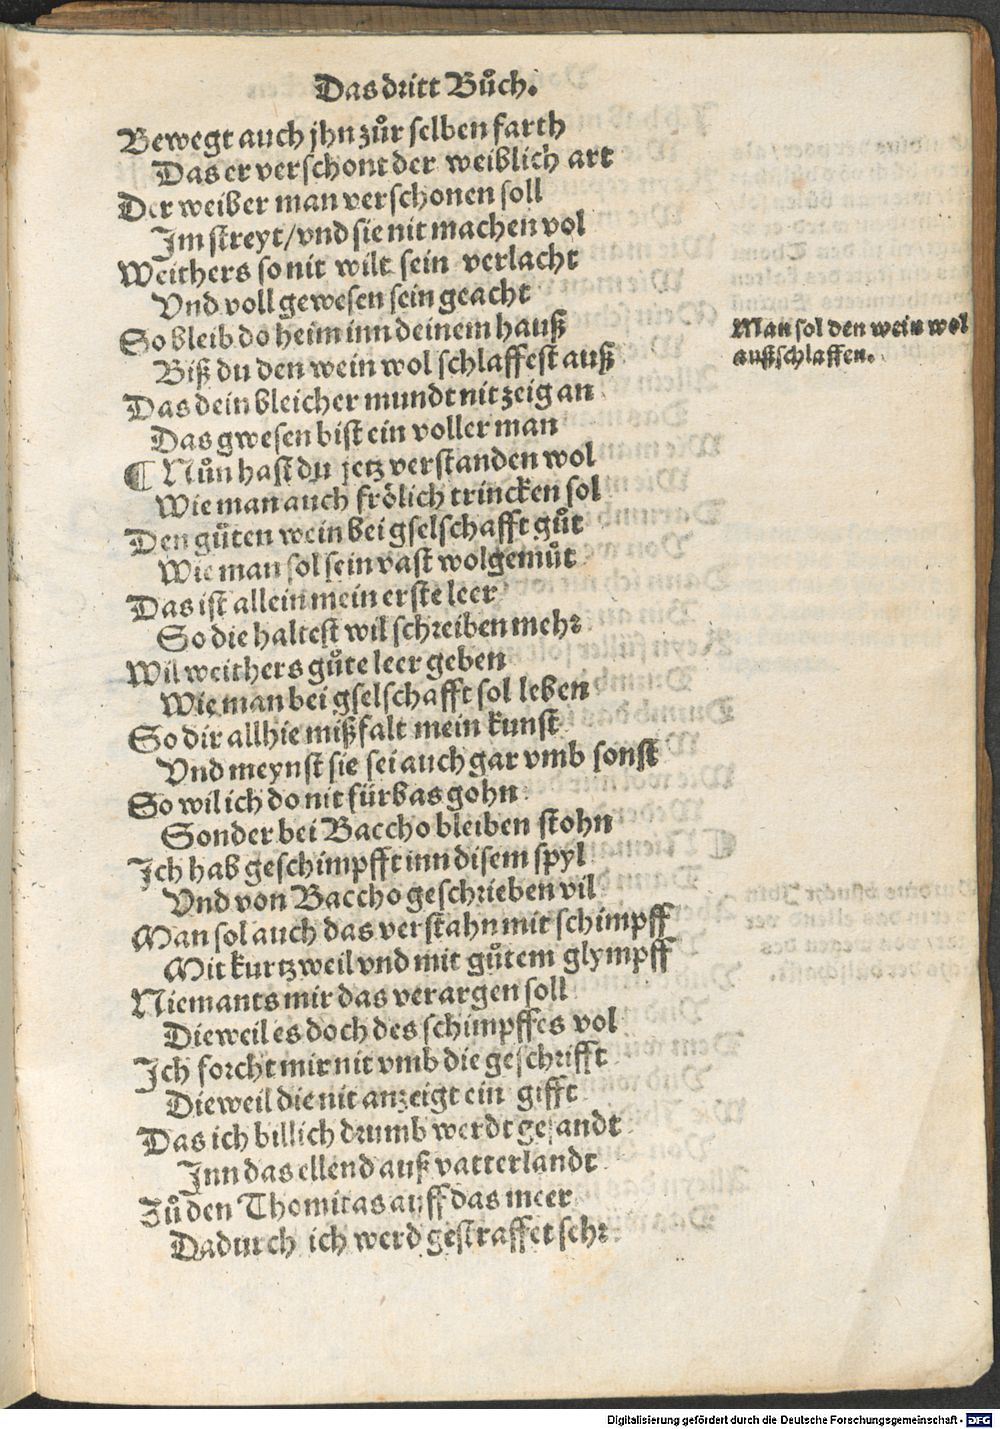 Das dritt Bůch.
Bewegt auch jhn zůr selben farth
Das er verschont der weiblich art
Der weiber man verschonen soll
Im streyt/vnd sie nit machen vol
Weithers so nit wilt sein verlacht
Vnd voll gewesen sein geacht
So bleib do heim inn deinem hauß
Biß du den wein wol schlaffest auß
Man sol den wein wol
außschlaffen.
Das dein bleicher mundt nit zeig an
Das gwesen bist ein voller man
¶ Nůn hast du jetz verstanden wol
Wie man auch frölich trincken sol
Den gůten wein bei gselschafft gůt
Wie man sol sein vast wolgemůt
Das ist allein mein erste leer
So die haltest wil schreiben mehr
Wil weithers gůte leer geben
Wie man bei gselschafft sol leben
So dir allhie mißfalt mein kunst
Vnd meynst sie sei auch gar vmb sonst
So wil ich do nit fürbas gohn
Sonder bei Baccho bleiben stohn
Ich hab geschimpfft inn disem spyl
Vnd von Baccho geschrieben vil
Man sol auch das verstahn mit schimpff
Mit kurtzweil vnd mit gůtem glympff
Niemants mir das verargen soll
Dieweil es doch des schimpffes vol
Ich forcht mir nit vmb die geschrifft
Dieweil die nit anzeigt ein gifft
Das ich billich drumb werdt gesandt
Inn das ellend auß vatterlandt
Zů den Thomitas auff das meer
Dadurch ich werd gestraffet sehr
Digitalisierung gefördert durch die Deutsche Forschungsgemeinschaft - DFG